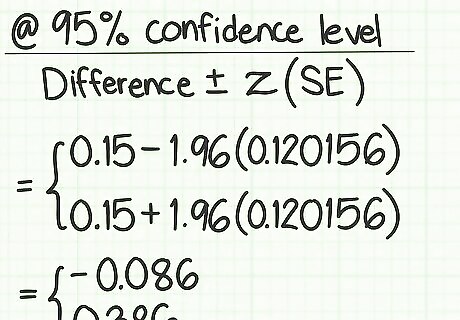 @ 95% confidence level
Difference ± Z (SE)
= { 0.15 - 1.96 (0.120156)
0.15 + 1.96 (0.120156)
= { - 0.086